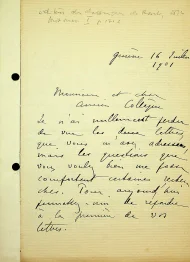 genève 16 Juillet
1901
Monsieur et cher
ancien Collègue
Je n'ai nullement perdu
de vue les deux lettres
que vous m'avez adressées,
mais les questions que
vous voulez bien me poser
comportent certaines recher
ches. Pour aujourd'hui
permettez-moi de répondre
à la première de vos
lettres.